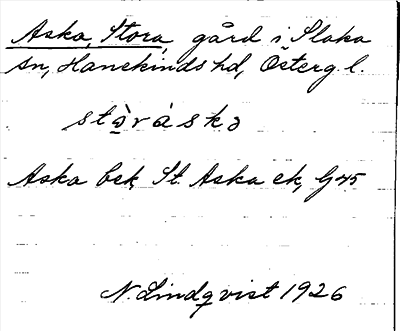 Aska, Stora, gård i Slaka
sn, Hanekinds hd, Österg. l.
stò̱ráskə
Aska bek, St. Aska ek, G 45
N. Lindqvist 1926